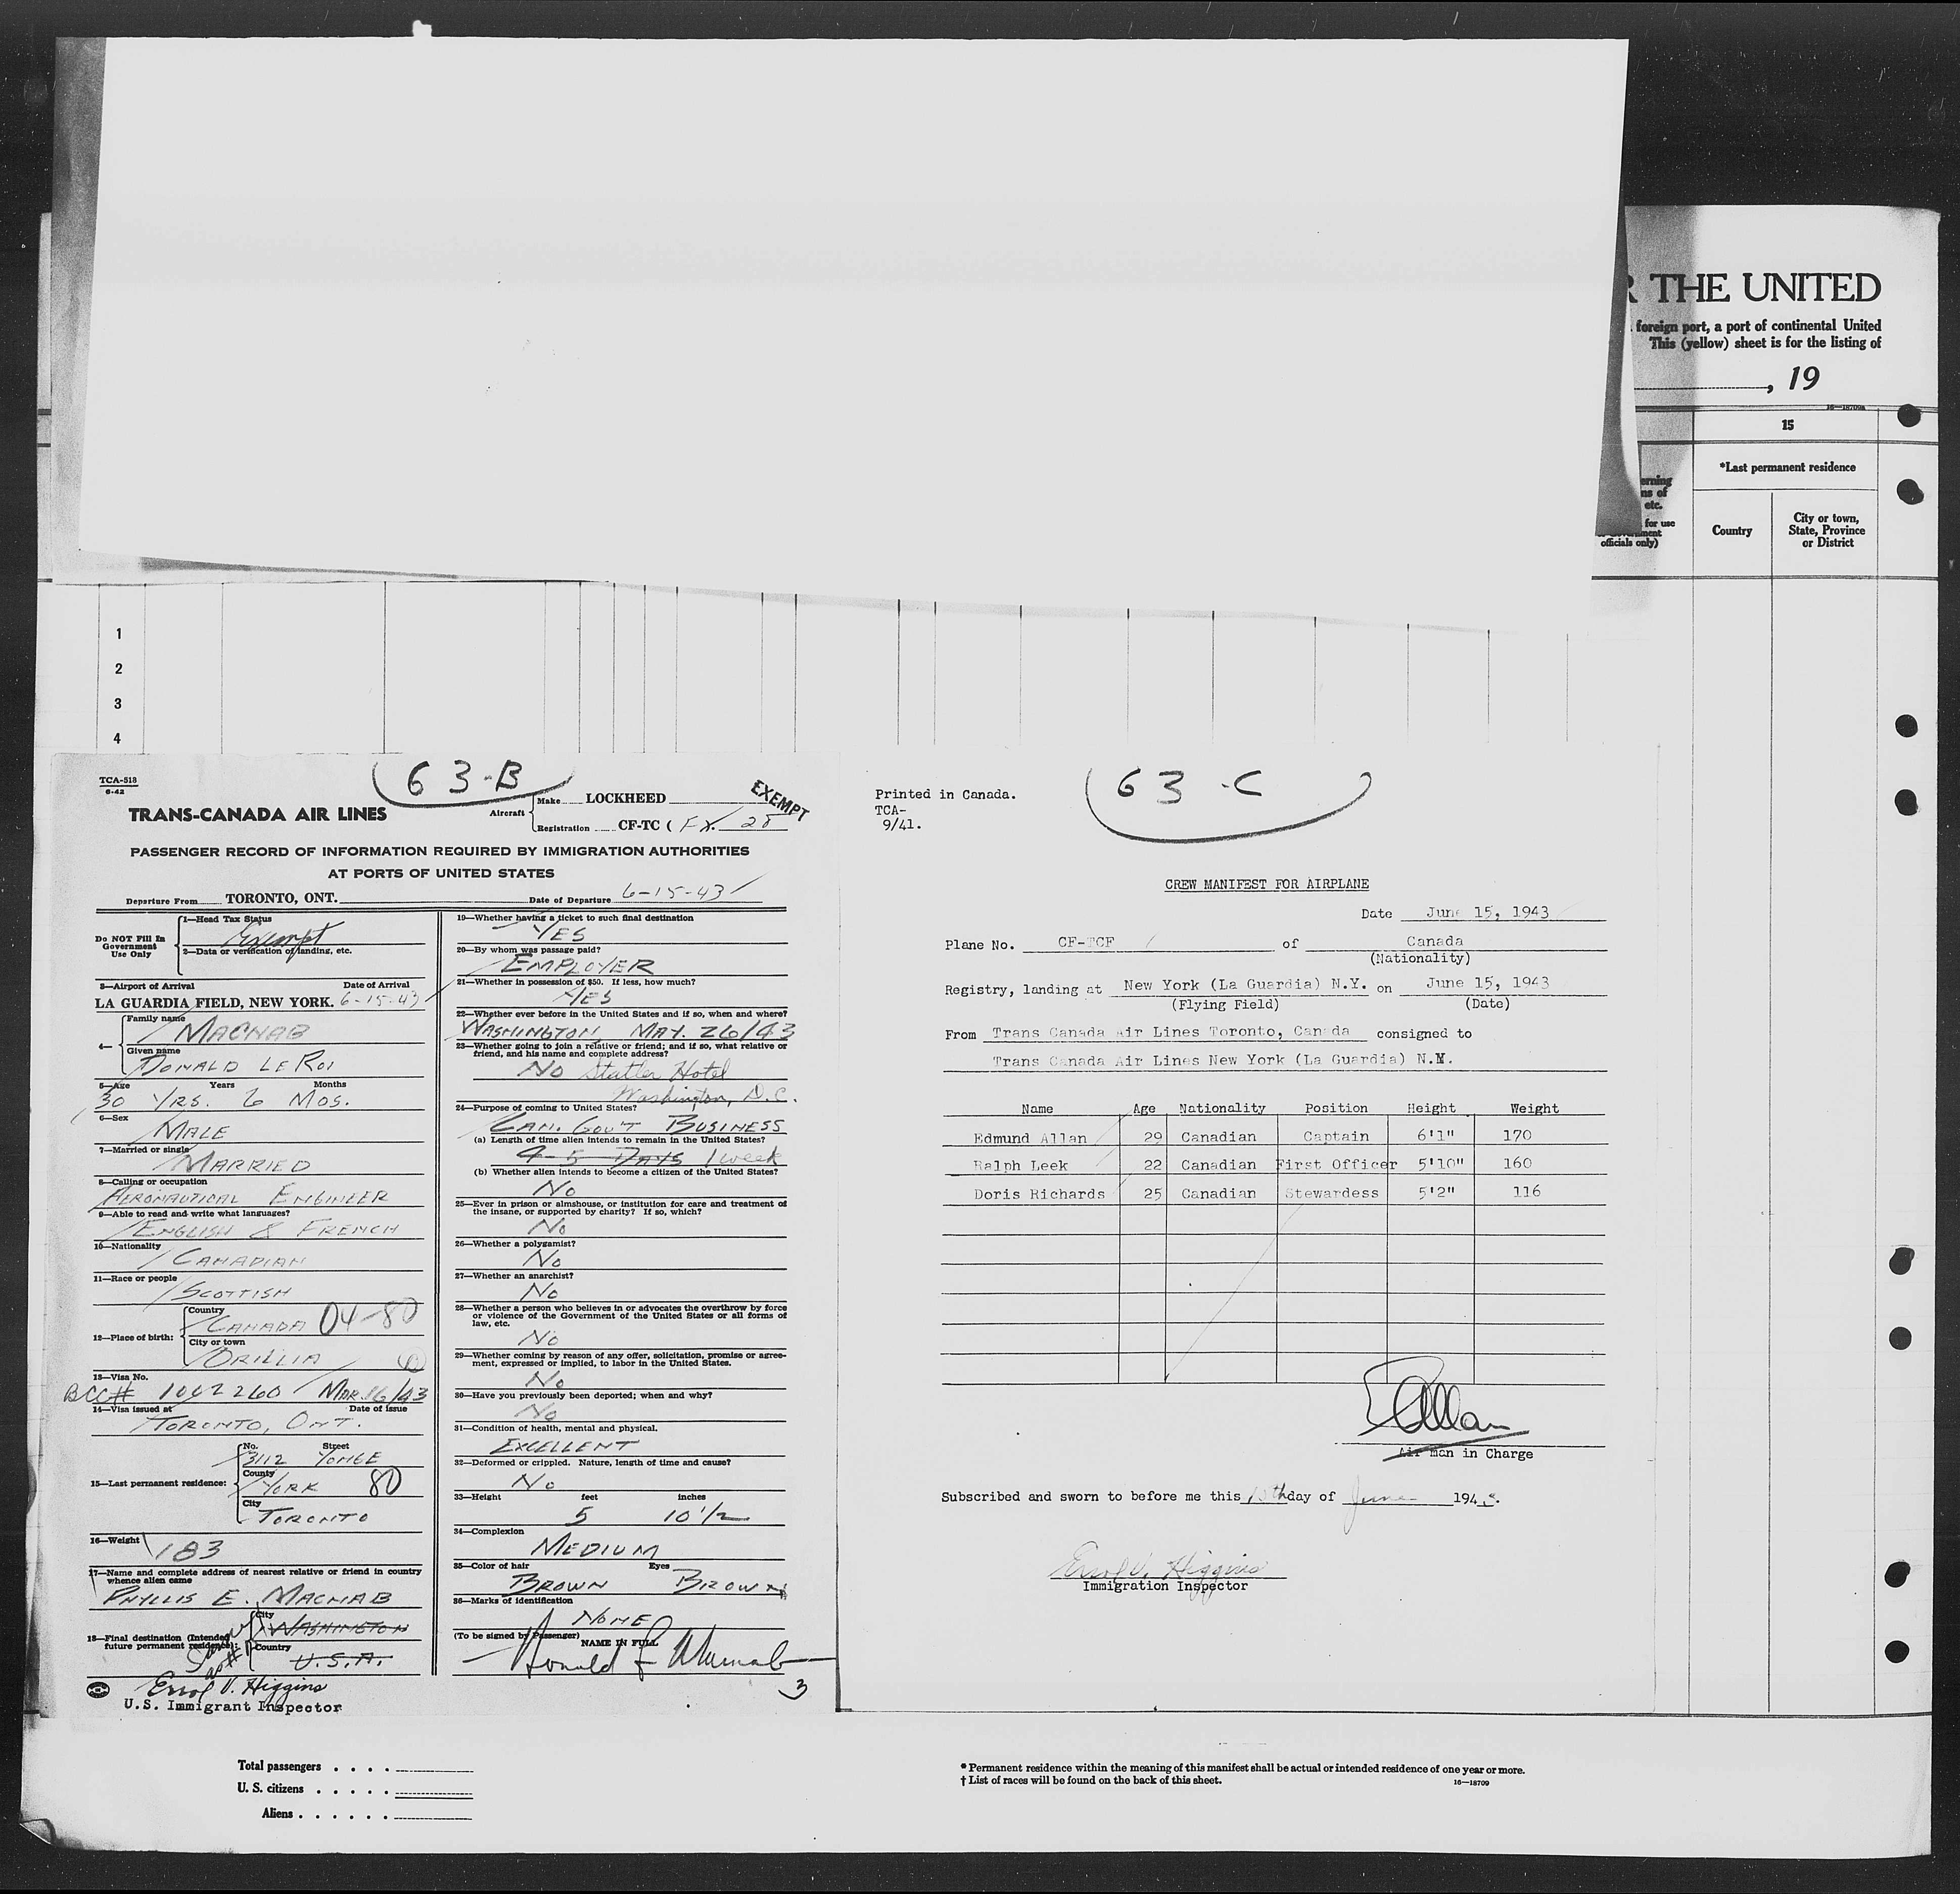 R THE UNITED
foreign port, a port of continental United
This (yellow) sheet is for the listing of
, 19
16—18709a
15
*Last permanent residence
erning
ns of
etc.
for use
officials only)
Country
City or town,
State, Province
or District
1
2
3
4
TCA-518
6-42
63-B
TRANS-CANADA AIR LINES
Aircraft
Make LOCKHEED
Registration CF-TC (
EXEMPT
PASSENGER RECORD OF INFORMATION REQUIRED BY IMMIGRATION AUTHORITIES
AT PORTS OF UNITED STATES
Departure From TORONTO, ONT. Date of Departure 6-15-43
Do NOT Fill In
Government
Use Only
1—Head Tax Status
Exempt
2—Data or verification of landing, etc.
3—Airport of Arrival Date of Arrival
LA GUARDIA FIELD, NEW YORK. 6-15-43
4—
Family name
MACNAB
Given name
DONALD LEROI
5—Age Years Months
30 YRS. 6 MOS.
6—Sex
MALE
7—Married or single
MARRIED
8—Calling or occupation
AERONAUTICAL ENGINEER
9—Able to read and write what languages?
ENGLISH & FRENCH
10—Nationality
CANADIAN
11—Race or people
SCOTTISH
12—Place of birth:
Country
CANADA 04-80
City or town
ORILLIA
13—Visa No.
BCC# 1002260 MAR. 16/43
14—Visa issued at Date of issue
TORONTO, ONT.
15—Last permanent residence:
No. Street
3112 YONGE
County
YORK 80
City
TORONTO
16—Weight
183
17—Name and complete address of nearest relative or friend in country
whence alien came
PHYLLIS E. MACNAB
18—Final destination (Intended
future permanent residence):
City
WASHINGTON
Country
U.S.A.
Same
as #
Errol V. Higgins
U.S. Immigrant Inspector
19—Whether having a ticket to such final destination
YES
20—By whom was passage paid?
EMPLOYER
21—Whether in possession of $50. If less, how much?
YES
22—Whether ever before in the United States and if so, when and where?
WASHINGTON MAY. 26/43
23—Whether going to join a relative or friend; and if so, what relative or
friend, and his name and complete address?
NO Statler Hotel
Washington, D.C.
24—Purpose of coming to United States?
CAN. GOV'T BUSINESS
(a) Length of time alien intends to remain in the United States?
4-5 DAYS 1 week
(b) Whether alien intends to become a citizen of the United States?
NO
25—Ever in prison or almshouse, or institution for care and treatment of
the insane, or supported by charity? If so, which?
NO
26—Whether a polygamist?
NO
27—Whether an anarchist?
NO
28—Whether a person who believes in or advocates the overthrow by force
or violence of the Government of the United States or all forms of
law, etc.
NO
29—Whether coming by reason of any offer, solicitation, promise or agree-
ment, expressed or implied, to labor in the United States.
NO
30—Have you previously been deported; when and why?
NO
31—Condition of health, mental and physical.
EXCELLENT
32—Deformed or crippled. Nature, length of time and cause?
NO
33—Height feet inches
5 10 1/2
34—Complexion
MEDIUM
35—Color of hair Eyes
BROWN BROWN
36—Marks of identification
NONE
(To be signed by Passenger) NAME IN FULL
Donald L Macnab
3
63-C
Printed in Canada.
TCA-
9/41.
CREW MANIFEST FOR AIRPLANE
Date June 15, 1943
Plane No. CF-TCF of Canada
(Nationality)
Registry, landing at New York (La Guardia) N.Y. on June 15, 1943
(Flying Field) (Date)
From Trans Canada Air Lines Toronto, Canada consigned to
Trans Canada Air Lines New York (La Guardia) N.Y.
Name Age Nationality Position Height Weight
Edmund Allan 29 Canadian Captain 6'1" 170
Ralph Leek 22 Canadian First Officer 5'10" 160
Doris Richards 25 Canadian Stewardess 5'2" 116
Allan
Air man in Charge
Subscribed and sworn to before me this 15th day of June 1943.
Errol V. Higgins
Immigration Inspector
Total passengers . . . .
U. S. citizens . . . . .
Aliens . . . . . .
* Permanent residence within the meaning of this manifest shall be actual or intended residence of one year or more.
† List of races will be found on the back of this sheet. 16—18709